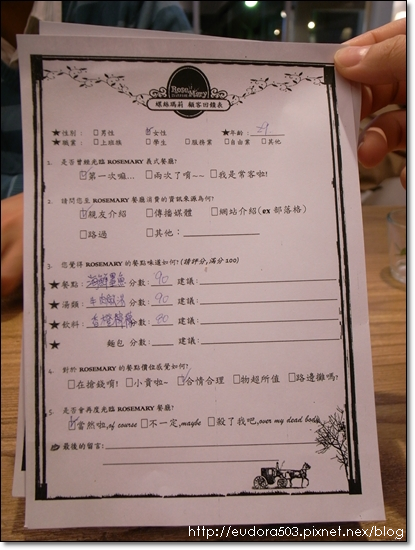 Rose Mary
螺絲瑪莉 顧客回饋表
★性別： □男性 ☑女性 ★年齡：29
★職業： □上班族 □學生 □服務業 □自由業 □其他
1. 是否曾經光臨 ROSEMARY 義式餐廳?
☑第一次嘛… □兩次了唷~~ □我是常客啦!
2. 請問您至 ROSEMARY 餐廳消費的資訊來源為何?
☑親友介紹 □傳播媒體 □網站介紹(ex 部落格)
□路過 □其他：
3. 您覺得 ROSEMARY 的餐點味道如何?(請評分,滿分 100)
★餐點： 分數：90 建議：
★湯類： 分數：90 建議：
★飲料： 分數：80 建議：
★ 麵包 分數： 建議：
4. 對於 ROSEMARY 的餐點價位感覺如何?
□在搶錢唷! □小貴啦~ ☑合情合理 □物超所值 □路邊攤嗎!
5. 是否會再度光臨 ROSEMARY 餐廳?
☑當然啦,of course □不一定,maybe □殺了我吧,over my dead body
最後的留言：
http://eudora503.pixnet.nex/blog